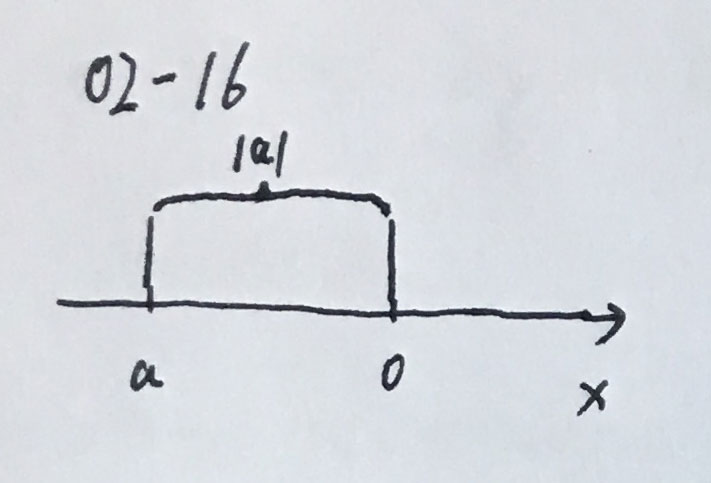 02-16
|a|
a 0
x